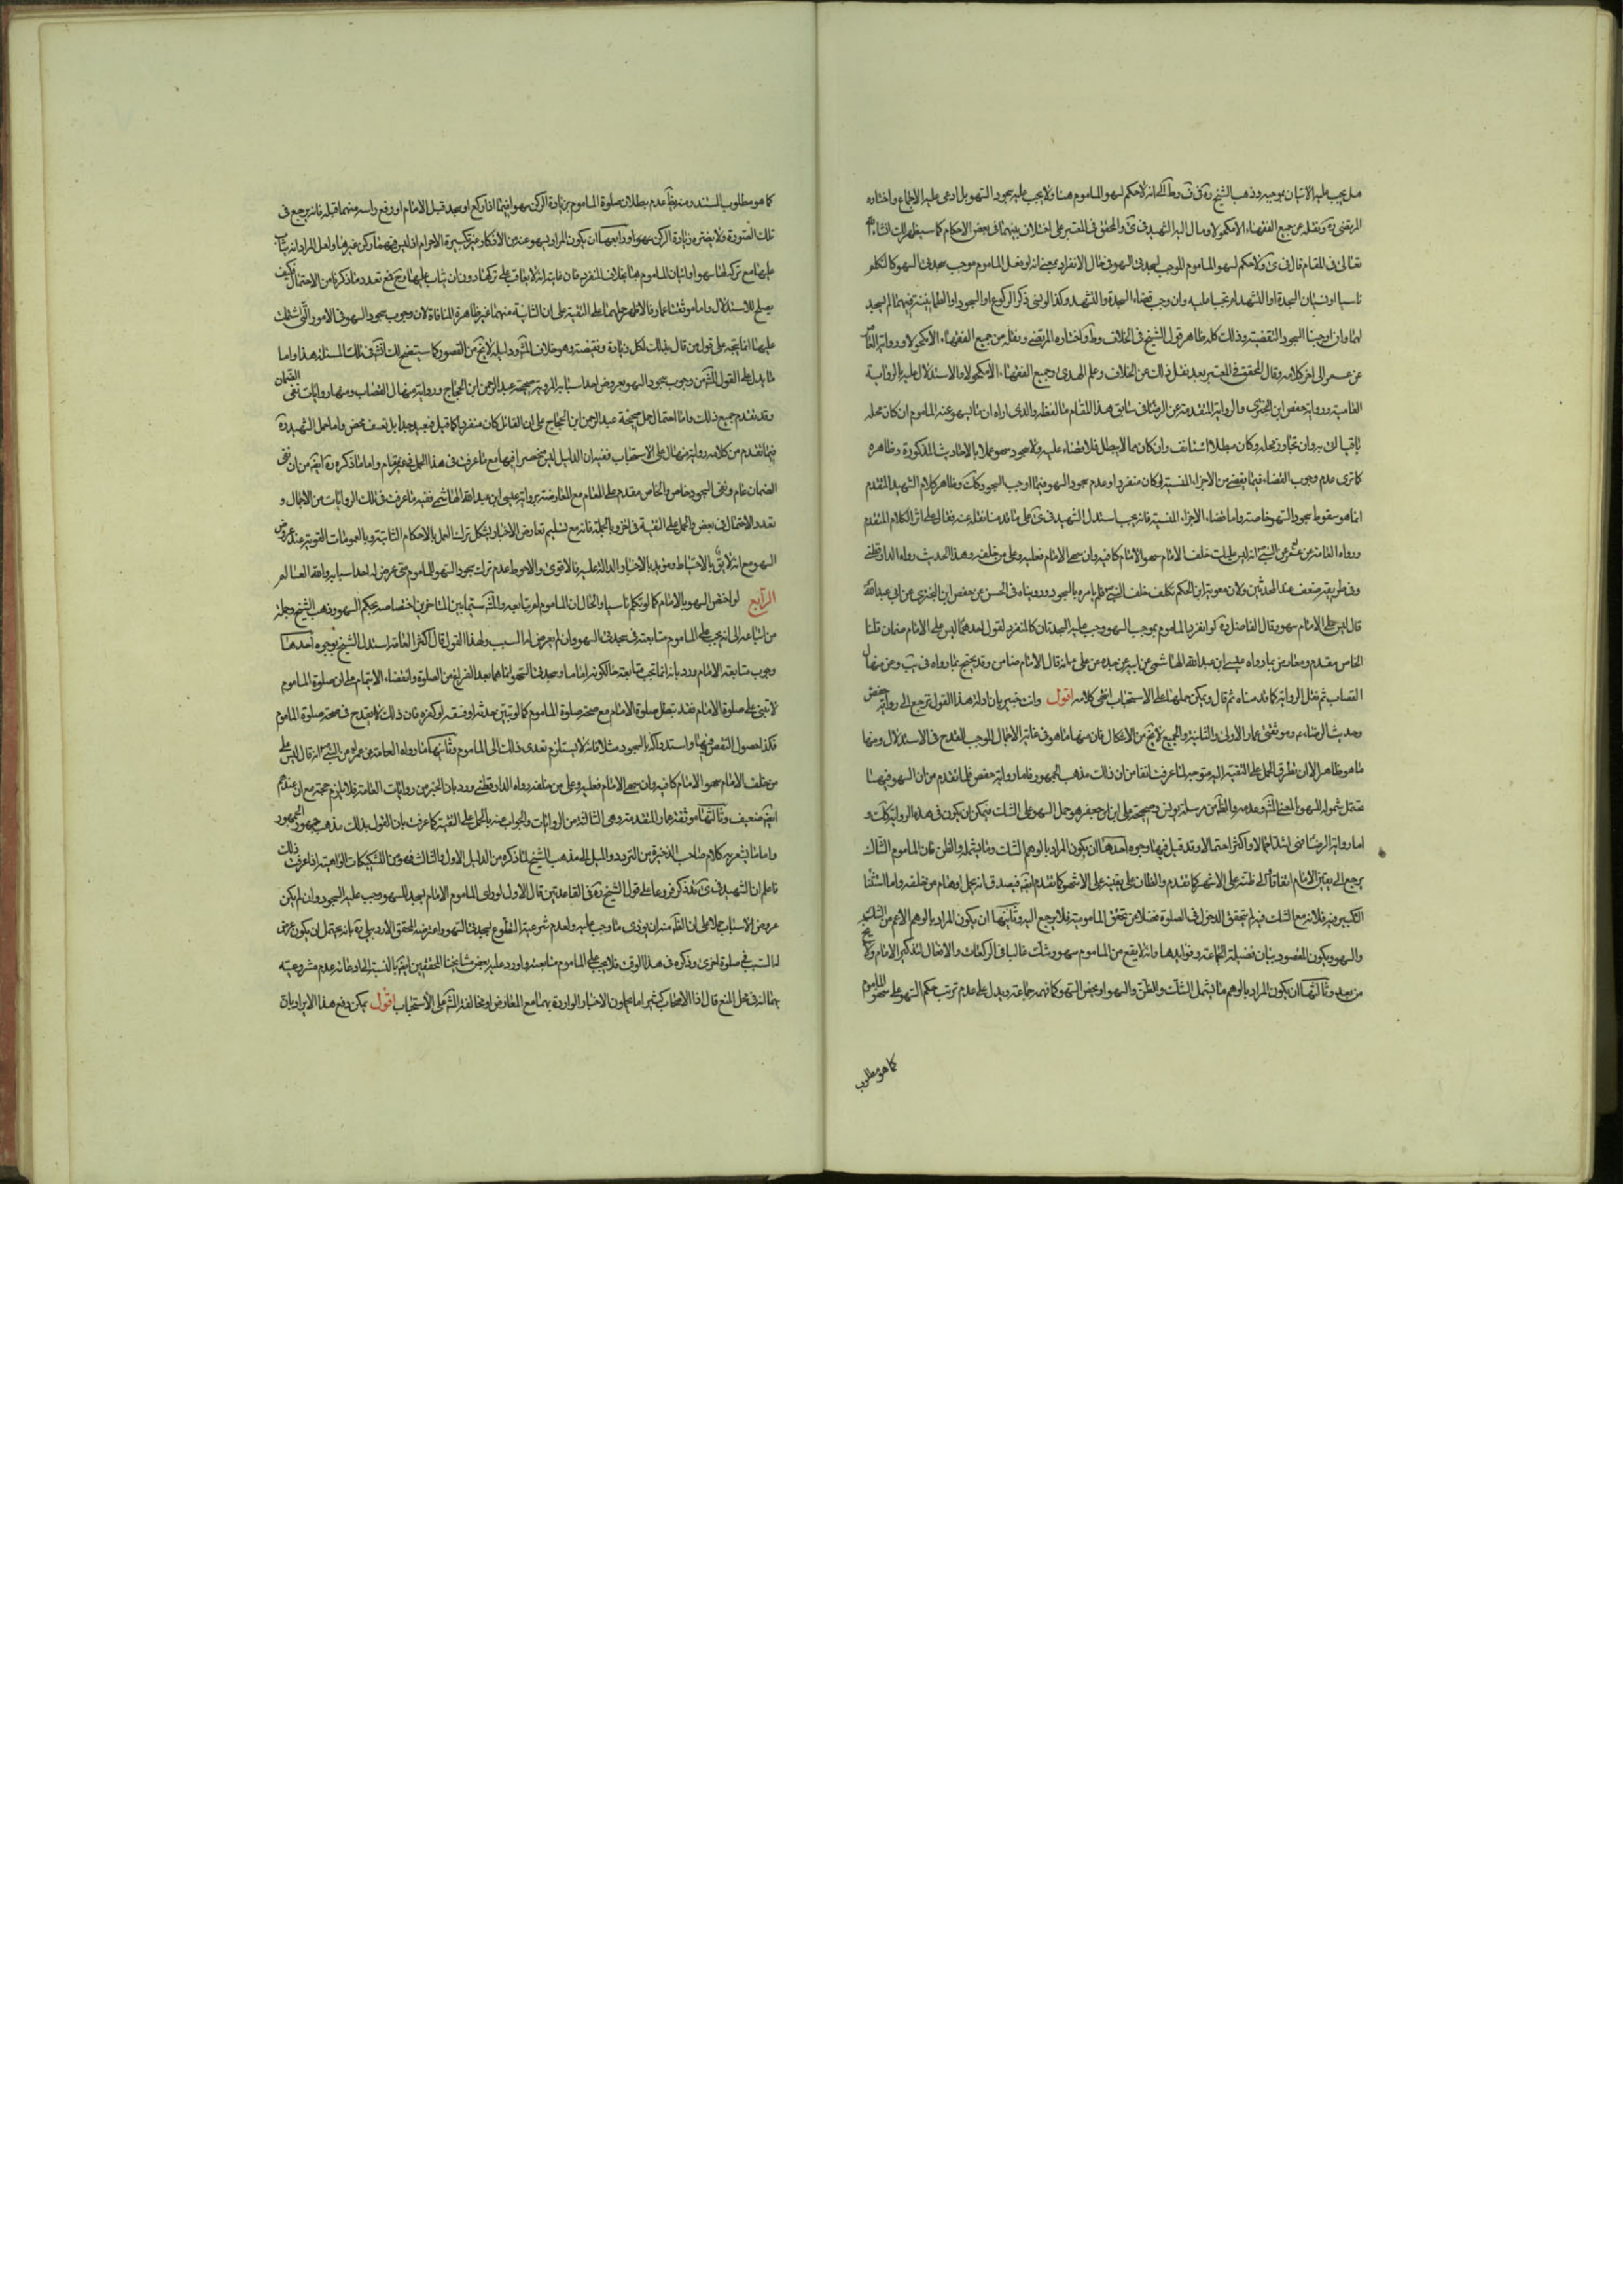 هل يجب عليه الاتيان بموجبه وذهب الشيخ ره في ف وط الى انه لا حكم لسهو الماموم هنا ولا يجب عليه سجود السهو بل ادعى عليه الاجماع واختاره
المرتضى ره ونقله عن جميع الفقهاء الا مكحولا ومال اليه الشهيد في ى والمحقق في المعتبر على اختلاف بينهما في بعض الاحكام كما سيظهر لك انشاء الله
تعالى في المقام قال في ى ولا حكم لسهو الماموم الموجب لسجدتى السهو في حال الانفراد بمعنى انه لو فعل الماموم موجب سجدتى السهو كالتكلم
ناسيا او نسيان السجدة او التشهد لم تجبا عليه وان وجب قضاء السجدة والتشهد وكذا لو نسى ذكر الركوع او السجود او الطمانينة فيهما لم يسجد
لهما وان اوجبنا السجود للنقيصة وذلك كله ظاهر قول الشيخ في الخلاف وط واختاره المرتضى ونقله عن جميع الفقهاء الا مكحولا ورواية العامة
عن عمر الى اخر كلامه وقال المحقق في المعتبر بعد نقل ذلك عن الخلاف وعلم الهدى وجميع الفقهاء الا مكحولا والاستدلال عليه بالرواية
العامية ورواية حفص ابن البخترى والرواية المتقدمة عن الرضا في سابق هذا المقام ما لفظه والذى اراه ان ما يسهو عنه الماموم ان كان محله
باقيا اتى به وان تجاوز محله وكان مبطلا استانف وان كان مما لا يبطل فلا قضاء عليه ولا سجود سهو عملا بالاحاديث المذكورة وظاهره
كما ترى عدم وجوب القضاء فيما يقضى من الاجزاء المنسية لو كان منفردا وعدم سجود السهو فيما اوجب السجود كك وظاهر كلام الشهيد المتقدم
انما هو سقوط سجود السهو خاصة واما قضاء الاجزاء المنسية فانه يجب استدل الشهيد في ى على ما قدمنا نقله عنه فقال على اثر الكلام المتقدم
ورواه العامة عن عمر عن النبي انه ليس عليك خلف الامام سهو الامام كافيه وان سهى الامام فعليه وعلى من خلفه وهذا الحديث رواه الدارقطنى
وفي طريقه ضعف عند المحدثين ولان معوية ابن الحكم تكلم خلف النبي فلم يامره بالسجود وروينا في الحسن عن حفص ابن البخترى عن ابي عبدالله
قال ليس على الامام سهو وقال الفاضل ره لو انفرد الماموم بموجب السهو وجب عليه السجدتان كالمنفرد لقول احدهما ليس على الامام ضمان قلنا
الخاص مقدم ومعارض بما رواه عيسى ابن عبدالله الهاشمى عن ابيه عن جده عن على انه قال الامام ضامن وقد يحتج بما رواه في يب وعن منهال
القصاب ثم نقل الرواية كما قدمناه ثم قال ويمكن حملها على الاستحباب انتهى كلامه اقول وانت خبير بان ادلة هذا القول ترجع الى رواية حفص
وحديث الرضا وموثقتى عمار الاولى والثانية والجميع لا يخ من الاشكال فان منها ما هو في غاية الاجمال الموجب للقدح في الاستدلال ومنها
ما هو ظاهر الا ان تطرق الحمل على التقية اليه متوجه لما عرفت انفا من ان ذلك مذهب الجمهور فاما رواية حفص فلما تقدم من ان السهو فيها
محتمل شموله للسهو بالمعنى المش وعدمه والظ من مرسلة يونس وصحيحة على ابن جعفر هو حمل السهو على الشك فيمكن ان يكون في هذه الرواية كك و
اما رواية الرضا فهى اشد اجمالا واكثر احتمالا وقد قيل فيها وجوه احدها ان يكون المراد بالوهم الشك وما يشمله والظن فان الماموم الشاك
يرجع الى يقين الامام اتفاقا والى ظنه على الاشهر كما تقدم والظان على يقينه على الاشهر كما تقدم ايض فيصدق انه يحمل اوهام من خلفه واما استثنا
التكبير فيه فلانه مع الشك فيه لم يتحقق الدخول في الصلوة فضلا عن تحقق المامومية فلا يرجع اليه وثانيها ان يكون المراد بالوهم الاعم من الشك
والسهو ويكون المقصود بيان فضيلة الجماعة وفوايدها وانه لا يقع من الماموم سهو وشك غالبا في الركعات والافعال لتذكير الامام
من بعد وثالثها ان يكون المراد بالوهم ما يشمل الشك والظن والسهو او محض السهو كما فهمه جماعة ويدل على عدم ترتب حكم السهو على سهو الماموم
كما هو مطلوب
كما هو مطلوب المستدل ومنه عدم بطلان صلوة الماموم بزيادة الركن سهوا فيما اذا ركع او سجد قبل الامام او رفع راسه منهما قبله فانه يرجع في
تلك الصورة ولا يضره زيادة الركن سهوا ورابعها ان يكون المراد ليسهو عنه من الاذكار غير تكبيرة الاحرام اذ ليس فيهما ركن غيرها ولعل المراد انه يثاب
عليها مع تركه لها سهوا واتيان الماموم بها بخلاف المنفرد فان غايته انه لا يعاقب على تركها دون ان يثاب عليها وح فمع تعدد ما ذكرنا من الاحتمال كيف
يصلح للاستدلال واما موثقتا عمار فالاظهر حملهما على التقية على ان الثانية منهما غير ظاهرة المنافاة لان وجوب سجود السهو في الامور التى اشتملت
عليها انما يتجه على قول من قال بذلك لكل زيادة ونقيصة وهو خلاف المش ودليله لا يخ من القصور كما سيتضح لك انش في تلك المسئلة هذا واما
ما يدل على القول المش من وجوب سجود السهو بعروض احد اسبابه المروية صحيحة عبدالرحمن ابن الحجاج ورواية منهال القصاب ومنها روايات نفى الضمان
وقد تقدم جميع ذلك واما احتمال حمل صحيحة عبدالرحمن ابن الحجاج على ان القائل كان منفردا كما قيل فبعيد جدا بل تعسف محض واما حمل الشهيد ره
فيما تقدم من كلامه رواية منهال على الاستحباب ففيه ان الدليل ليس منحصرا فيها مع ما عرفت في هذا الحمل في غير مقام واما ما ذكره ره ايض من ان نفى
الضمان عام ونفى السجود خاص والخاص مقدم على العام مع المعارضة برواية عيسى ابن عبدالله الهاشمى ففيه ما عرفت في تلك الروايات من الاجمال و
تعدد الاحتمال في بعض والحمل على التقية في اخر وبالجملة فانه مع تسليم تعارض الاخبار يشكل ترك العمل بالاحكام الثابتة وبالعمومات القوية عند عروض
السهو مع انه لايق بالاحتياط ومؤيد بالاخبار الدالة عليه فالاقوى والاحوط عدم ترك سجود السهو للماموم متى عرض له احد اسبابه والله العالم
الرابع لو اختص السهو بالامام كما لو تكلم ناسيا والحال ان الماموم لم يتابعه والمش سيما بين المتاخرين اختصاصه بحكم السهو وذهب الشيخ وجملة
من اتباعه الى انه يجب على الماموم متابعته في سجدتى السهو وان لم يعرض له السبب ولهذا القول قال اكثر العامة استدل الشيخ بوجوه احدها
وجوب متابعة الامام ورد بانه انما تجب متابعته حال كونه اماما وسجدتا السهو انما هما بعد الفراغ من الصلوة وانقضاء الايتمام على ان صلوة الماموم
لا تبنى على صلوة الامام فقد تبطل صلوة الامام مع صحة صلوة الماموم كما لو تبين حدثه او فسقه او كفره فان ذلك لا يقدح في صحة صلوة الماموم
فكذا حصول النقص فيها واستدراكه بالسجود مثلا فانه لا يستلزم تعدى ذلك الى الماموم وثانيها ما رواه العامة عن عمر عن النبي انه قال ليس على
من خلف الامام سهو الامام كافيه وان سهى الامام فعليه وعلى من خلفه رواه الدارقطنى ورد بان الخبر من روايات العامة فلا يلزم حجة مع انه عندهم
ايض ضعيف وثالثها موثقة عمار المتقدمة وهى الثالثة من الروايات والجواب عنه بالحمل على التقية كما عرفت بان القول بذلك مذهب جمهور الجمهور
واما ما يشعر به كلام صاحب الذخيرة من التردد والميل الى مذهب الشيخ لما ذكره من الدليل الاول والثالث فهو من التشكيكات الواهية اذا عرفت ذلك
فاعلم ان الشهيد في ى بعد ذكر فروعا على قول الشيخ ره في القاعدتين قال الاول لو راى الماموم الامام يسجد للسهو وجب عليه السجود وان لم يكن
عروض الاسباب حملا على ان الظ منه انه يؤدى ما وجب عليه ولعدم شرعية التطوع بسجدتى السهو واعترضه المحقق الاردبيلى ره بانه يحتمل ان يكون عرض
له السبب في صلوة اخرى وذكره في هذا الوقت فلا يجب على الماموم متابعته واورد عليه بعض مشايخنا المحققين ايض بالنسبة الى ادعائه عدم مشروعية
بها انه في محل المنع قال اذ الاصحاب كثيرا ما يحملون الاخبار الواردة بهما مع المعارض او مخالفة المش على الاستحباب اقول يمكن دفع هذا الايراد بان